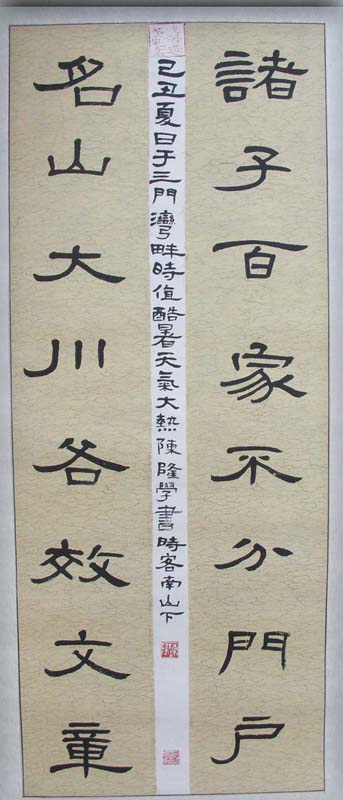 諸子百家不分門戶
名山大川各效文章
己丑夏日于三門灣畔時值酷暑天氣大熱陳隆學書時客南山下